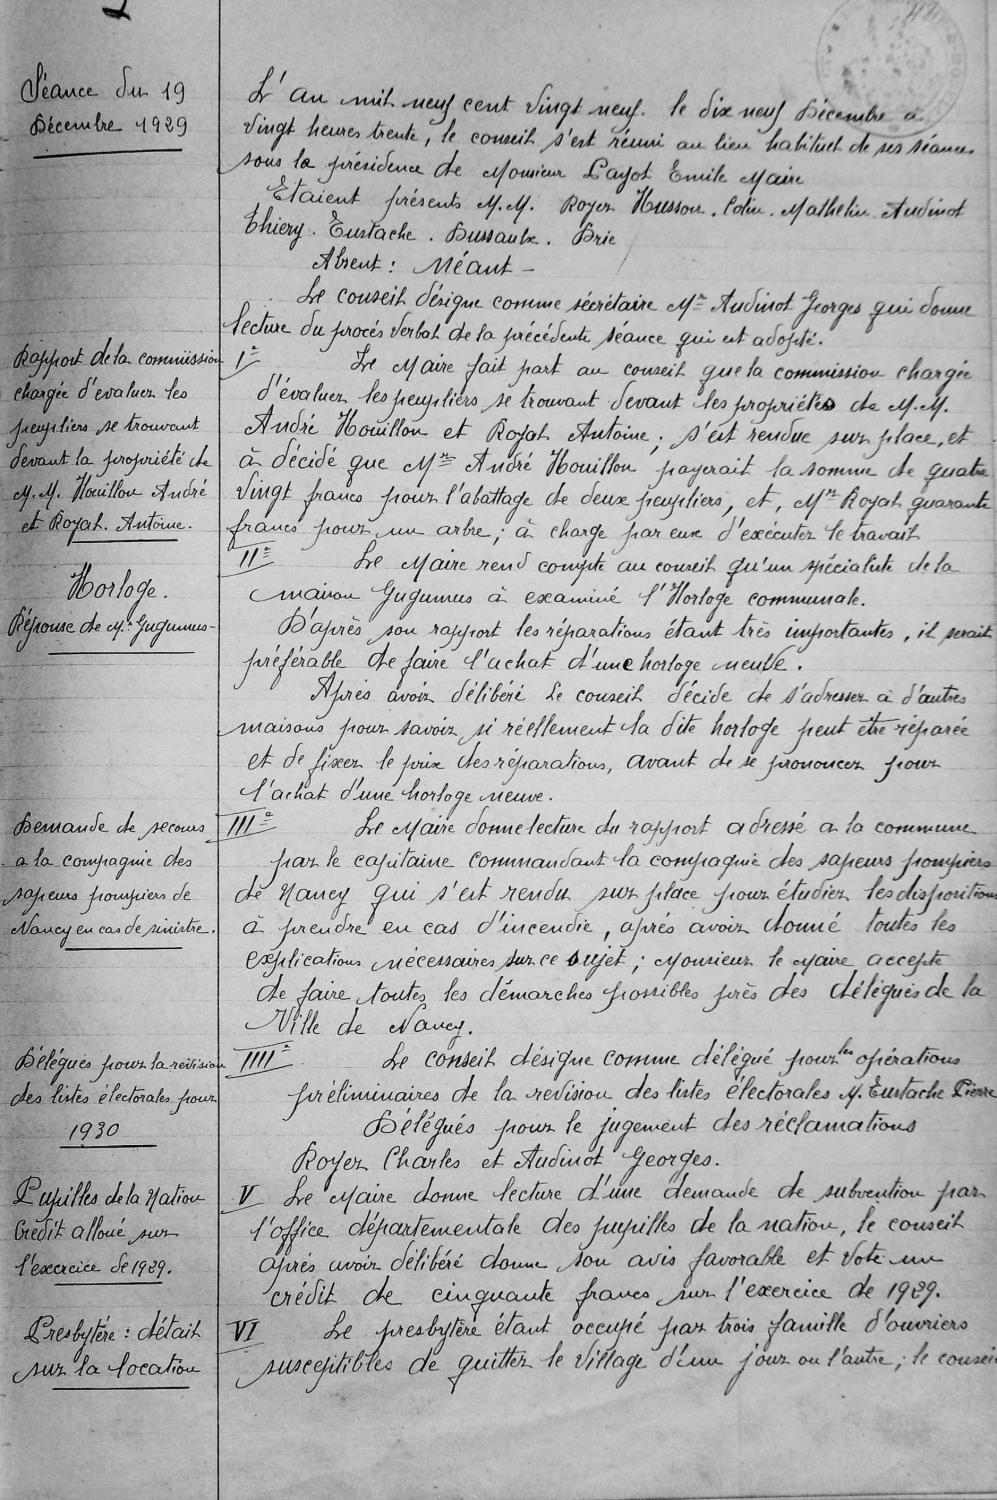 Séance du 19
Décembre 1929
L'an mil neuf cent vingt neuf. le dix neuf Décembre à
vingt heures trente, le conseil s'est réuni au lieu habituel de ses séances
sous la présidence de Monsieur Payot Emile Maire
Etaient présents M.M. Royer Husson. Colin. Mathelin Audinot
Thiery. Eustache. Dussaulx. Brie
Absent : Néant -
Le conseil désigne comme sécrétaire Mr Audinot Georges qui donne
lecture du procés verbal de la précédente séance qui est adopté.
Rapport de la commission
chargée d'évaluer les
peupliers se trouvant
devant la propriété de
M.M. Houillon André
et Royat. Antoine.
I° Le Maire fait part au conseil que la commission chargée
d'évaluer les peupliers se trouvant devant les propriétés de M.M.
André Houillon et Royat Antoine ; s'est rendue sur place, et
à décidé que Mr André Houillon payerait la somme de quatre
vingt francs pour l'abattage de deux peupliers, et, Mr Royat quarante
francs pour un arbre ; à charge par eux d'exécuter le travail
Horloge.
Réponse de Mr Gugumus-
II° Le Maire rend compte au conseil qu'un spécialiste de la
maison Gugumus à examiné l'Horloge communale.
D'après son rapport les réparations étant très importantes, il serait
préférable de faire l'achat d'une horloge neuve.
Après avoir délibéré Le conseil décide de s'adresser à d'autres
maisons pour savoir, si réellement la dite horloge peut être réparée
et de fixer le prix des réparations, avant de se prononcer pour
l'achat d'une horloge neuve.
Demande de secours
a la compagnie des
sapeurs pompiers de
Nancy en cas de sinistre.
III° Le Maire donne lecture du rapport adressé a la commune
par le capitaine commandant la compagnie des sapeurs pompiers
de Nancy qui s'est rendu sur place pour étudier les dispositions
à prendre en cas d'incendie, aprés avoir donné toutes les
explications nécessaires sur ce sujet ; Monsieur le Maire accepte
de faire toutes les démarches possibles près des délégués de la
Ville de Nancy.
Délégués pour la revision
des listes électorales pour
1930
IIII° Le conseil désigne comme délégué pour les opérations
préliminaires de la revision des listes électorales M. Eustache Pierre
Délégués pour le jugement des réclamations
Royer Charles et Audinot Georges.
Pupilles de la Nation
Crédit alloué sur
l'exercice de 1929.
V Le Maire donne lecture d'une demande de subvention par
l'office départementale des pupilles de la nation, le conseil
après avoir délibéré donne son avis favorable et vote un
crédit de cinquante francs sur l'exercice de 1929.
Presbytère : détail
sur la location
VI Le presbytère étant occupé par trois famille d'ouvriers
susceptibles de quitter le village d'un jour ou l'autre ; le conseil